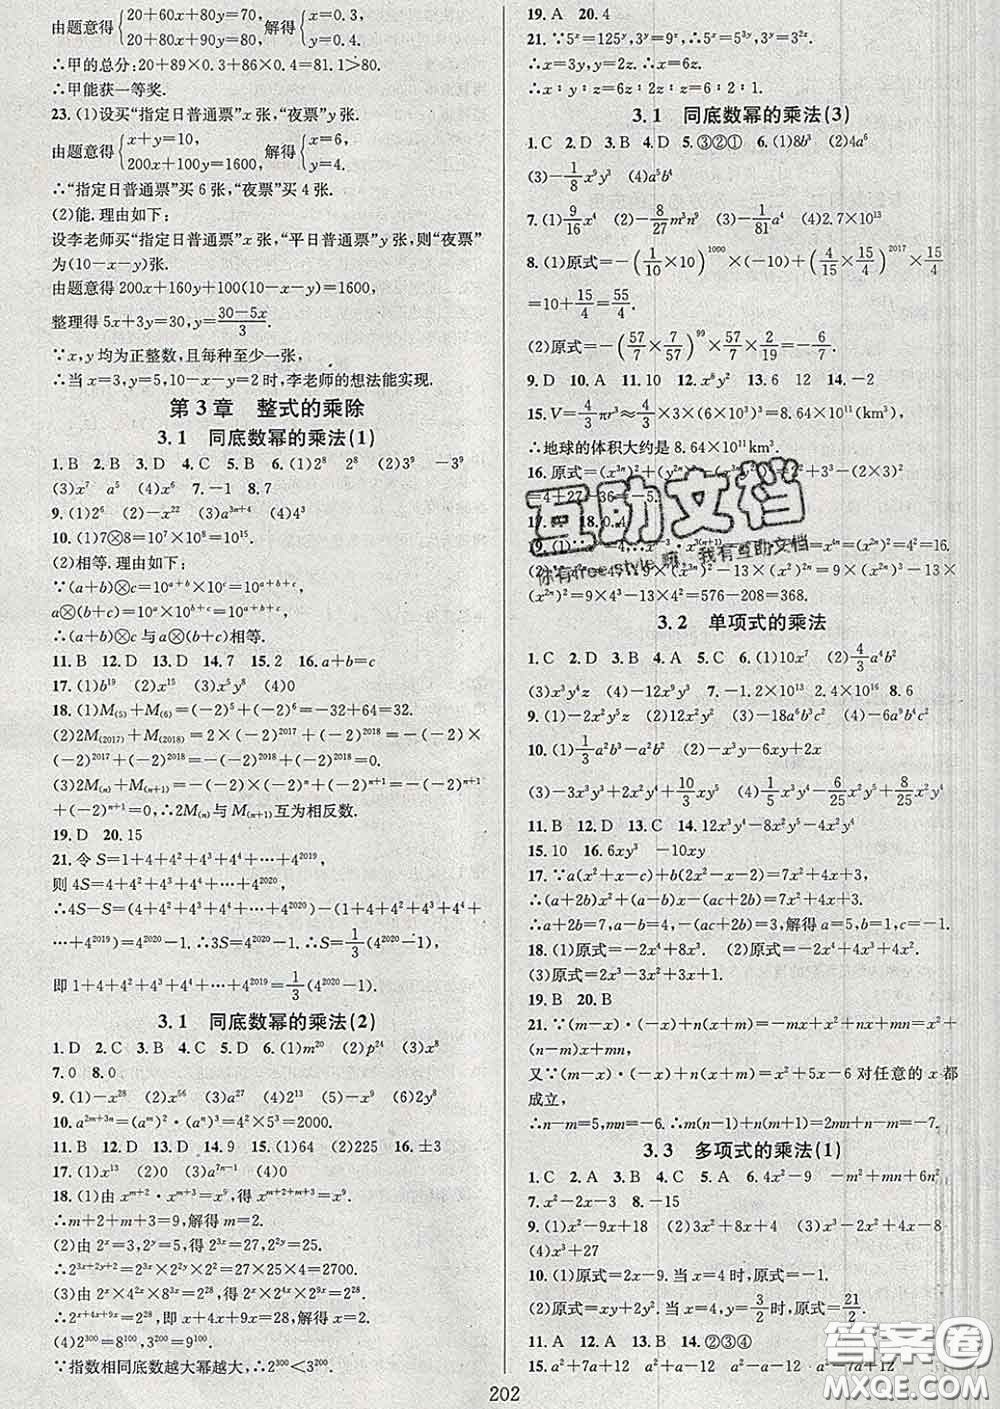 由题意得{20+60x+80y=70, 20+80x+90y=80, 解得{x=0.3, y=0.4.
∴甲的总分:20+89×0.3+86×0.4=81.1>80.
∴甲能获一等奖.
23. (1)设买“指定日普通票”x张,“夜票”y张.
由题意得{x+y=10, 200x+100y=1600, 解得{x=6, y=4.
∴“指定日普通票”买6张,“夜票”买4张.
(2)能.理由如下:
设李老师买“指定日普通票”x张,“平日普通票”y张,则“夜票”
为(10-x-y)张.
由题意得200x+160y+100(10-x-y)=1600,
整理得5x+3y=30,y=(30-5x)/3.
∵x,y均为正整数,且每种至少一张,
∴当x=3,y=5,10-x-y=2时,李老师的想法能实现.
第3章 整式的乘除
3.1 同底数幂的乘法(1)
1. B 2. B 3. D 4. C 5. B 6. (1)2⁸ 2⁸ (2)3⁹ -3⁹
(3)x⁷ a⁵ (4)0 7. -1 8. 7
9. (1)2⁶ (2)-x²² (3)a³ⁿ⁺⁴ (4)4³
10. (1)7⊗8=10⁷×10⁸=10¹⁵.
(2)相等.理由如下:
∵(a+b)⊗c=10ᵃ⁺ᵇ×10ᶜ=10ᵃ⁺ᵇ⁺ᶜ,
a⊗(b+c)=10ᵃ×10ᵇ⁺ᶜ=10ᵃ⁺ᵇ⁺ᶜ,
∴(a+b)⊗c与a⊗(b+c)相等.
11. B 12. D 13. D 14. 7 15. 2 16. a+b=c
17. (1)b¹⁹ (2)x¹⁵ (3)5x⁵y⁷ (4)0
18. (1)M₍₅₎+M₍₆₎=(-2)⁵+(-2)⁶=-32+64=32.
(2)2M₍₂₀₁₇₎+M₍₂₀₁₈₎=2×(-2)²⁰¹⁷+(-2)²⁰¹⁸=-(-2)×
(-2)²⁰¹⁷+(-2)²⁰¹⁸=-(-2)²⁰¹⁸+(-2)²⁰¹⁸=0.
(3)2M₍ₙ₎+M₍ₙ₊₁₎=-(-2)×(-2)ⁿ+(-2)ⁿ⁺¹=-(-2)ⁿ⁺¹
+(-2)ⁿ⁺¹=0,∴2M₍ₙ₎与M₍ₙ₊₁₎互为相反数.
19. D 20. 15
21. 令S=1+4+4²+4³+4⁴+…+4²⁰¹⁹,
则4S=4+4²+4³+4⁴+…+4²⁰²⁰,
∴4S-S=(4+4²+4³+4⁴+…+4²⁰²⁰)-(1+4+4²+4³+4⁴+
…+4²⁰¹⁹)=4²⁰²⁰-1.∴3S=4²⁰²⁰-1,∴S=1/3(4²⁰²⁰-1),
即1+4+4²+4³+4⁴+…+4²⁰¹⁹=1/3(4²⁰²⁰-1).
3.1 同底数幂的乘法(2)
1. D 2. C 3. B 4. C 5. B 6. (1)m²⁰ (2)p²⁴ (3)x⁸
7. 0 8. 0
9. (1)-x²⁸ (2)x⁵⁶ (3)a⁸ (4)2¹³ (5)-x⁷ (6)2y⁶
10. a²ᵐ⁺³ⁿ=(aᵐ)²·(aⁿ)³=4²×5³=2000.
11. B 12. D 13. D 14. 9 15. (1)64 (2)225 16. ±3
17. (1)x¹³ (2)0 (3)a⁷ⁿ⁻¹ (4)0
18. (1)由xᵐ⁺²·x³·xᵐ=x⁹,得xᵐ⁺²⁺³⁺ᵐ=x⁹.
∴m+2+m+3=9,解得m=2.
(2)由2ˣ=3,2ʸ=5,得2³ˣ=27,2²ʸ=25.
∴2³ˣ⁺²ʸ⁺²=2³ˣ×2²ʸ×2²=27×25×4=2700.
(3)由2ˣ×4²ˣ×8³ˣ=2²⁸,得2ˣ×2⁴ˣ×2⁹ˣ=2²⁸,
∴2ˣ⁺⁴ˣ⁺⁹ˣ=2²⁸,即x+4x+9x=28,解得x=2.
(4)2³⁰⁰=8¹⁰⁰,3²⁰⁰=9¹⁰⁰,
∵指数相同底数越大幂越大,∴2³⁰⁰<3²⁰⁰.
19. A 20. 4
21. ∵5ˣ=125ʸ,3ʸ=9ᶻ,∴5ˣ=5³ʸ,3ʸ=3²ᶻ.
∴x=3y,y=2z.∴x=6z.
∴x∶y∶z=6z∶2z∶z=6∶2∶1.
3.1 同底数幂的乘法(3)
1. C 2. D 3. B 4. D 5. ③②① 6. (1)8b³ (2)4a⁶
(3)-1/8x⁹y³ (4)a⁵b⁴
7. (1)9/16x⁴ (2)-8/27m³n⁹ (3)-1/81a⁴ (4)2.7×10¹³
8. (1)原式=-(1/10×10)¹⁰⁰⁰×(-10)+(4/15×15/4)²⁰¹⁷×15/4
=10+15/4=55/4.
(2)原式=-(57/7×7/57)⁹⁹×57/7×2/19=-6/7.
9. D 10. A 11. D 12. x⁶y² 13. 6 12 14. -2
15. V=4/3πr³≈4/3×3×(6×10³)³=8.64×10¹¹(km³),
∴地球的体积大约是8.64×10¹¹km³.
16. 原式=(x³ⁿ)²+(y²ⁿ)
=4+27-36=-5.
18. 0.4
(xⁿ)²=4²=16.
×(x²ⁿ)²=9×(xⁿ)⁴-13×
(xⁿ)²=9×4³-13×4²=576-208=368.
3.2 单项式的乘法
1. C 2. D 3. D 4. D 5. B 6. (1)10x⁷ (2)4/3a⁴b²
(3)x³y⁴z (4)-12x⁹y⁵ 7. -1.2×10¹³ 8. 6
9. (1)-2x²y⁵z (2)12x²y² (3)-18a⁶b³c² (4)-6a⁹b⁴c²
10. (1)1/3a²b³-a²b² (2)-3x²y-6xy+2x
11. B 12. C 13. B 14. 2x³y⁴-8x⁴y²-8x²y⁴
15. 10 16. 6xy³ -10xy
17. ∵a(x²+x-c)+b(2x²-x-2)=7x²+4x+3,
∴(a+2b)x²+(a-b)x-(ac+2b)=7x²+4x+3.
∴a+2b=7,a-b=4,-(ac+2b)=3,解得a=5,b=1,c=-1.
18. (1)原式=-2x⁴+8x³. (2)原式=-2x⁴+4x³+4x².
(3)原式=2x³-3x²+3x+1.
19. B 20. B
21. ∵(m-x)·(-x+n)·(x+m)=-mx+x²-nx+mn=x²+
(n-m)x+mn,
又∵(m-x)·(-x)+n(x+m)=x²+5x-6对任意的x都
成立,
∴n-m=5,mn=-6,∴m(n-1)+n(m+1)=n-m+2mn=-7.
3.3 多项式的乘法(1)
1. C 2. A 3. B 4. C 5. A 6. 4x²-9 -m²+mn+6n²
7. x²-2x-3 8. -15
9. (1)x²-9x+18 (2)3x²+xy-2y² (3)3x²+2x-8
(4)x³+27
10. (1)原式=2x-9.当x=4时,原式=-1.
(2)原式=xy+2y².当x=4,y=3/2时,原式=21/2.
11. A 12. A 13. B 14. ②③④
15. a²+7a+12 a²+a-12 a²-a-12
202
互助文档
答案圈
MXQE.COM